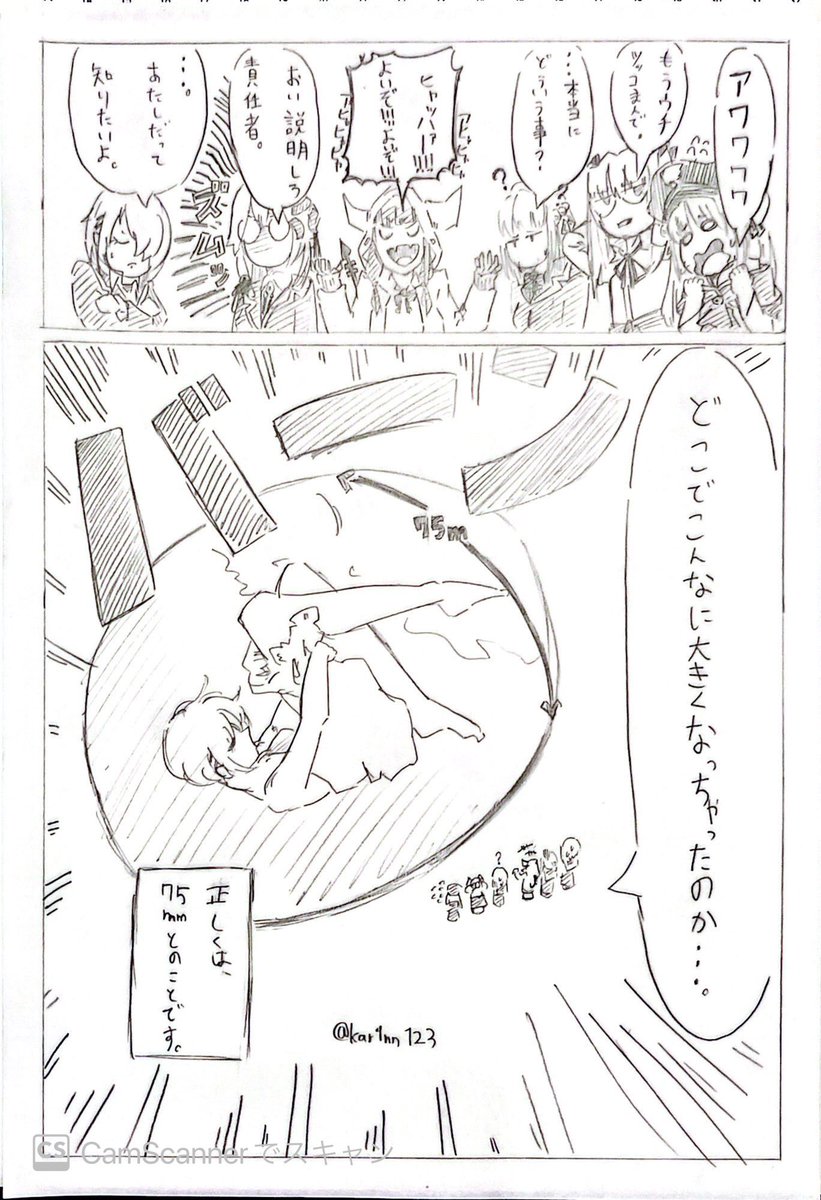 アワワワワ
もうウチ
ツッコまんで。
…本当に
どういう事？
ヒャッハァ
ー!!!!
よいぞ!!!よぞ!!!
おい説明しろ
責任者。
…。
あたしだって
知りたいよ。
ズムッ
75m
どこでこんなに大きくなっちゃったのか…。
正しくは、
75mmとのことです。
@kar1nn123
CS CamScanner でスキャン